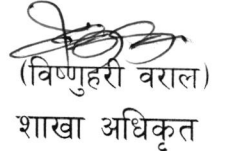 (विष्णुहरी वराल)
शाखा अधिकृत